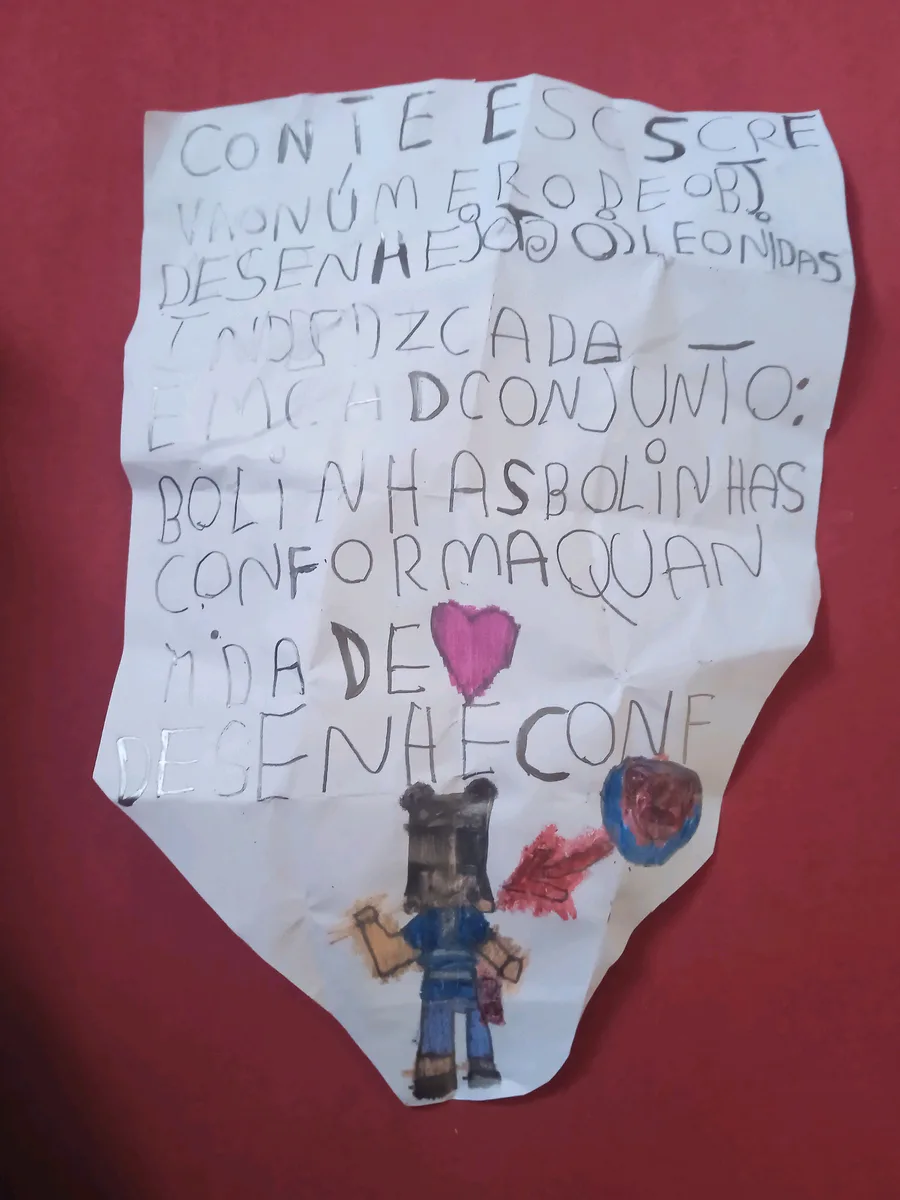 CONTE ESCSCRE
VAONÚMERODEOBJ
DESENHEJOÃOLEONIDAS
ZCADA
EMCADCONJUNTO:
BOLINHASBOLINHAS
CONFORMAQUAN
DADE
DESENHECONF